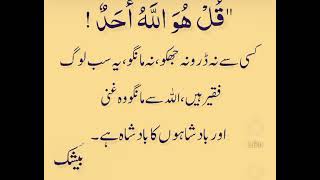 "قُلْ هُوَ اللَّهُ أَحَدٌ !
کسی سے نہ ڈرو نہ جھکو، نہ مانگو، یہ سب لوگ
فقیر ہیں، اللہ سے مانگو وہ غنی
اور بادشاہوں کا بادشاہ ہے۔
بیشک